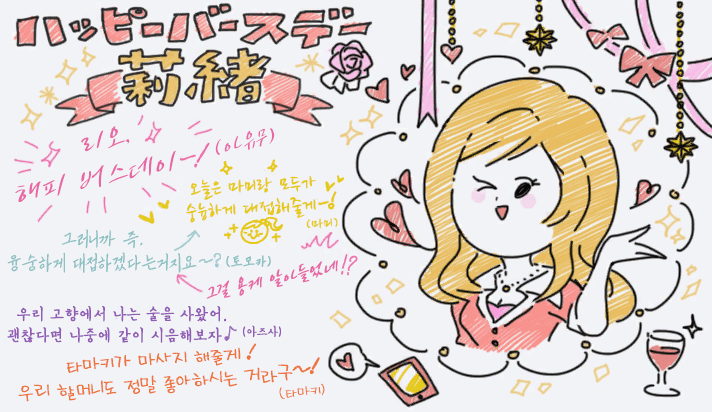 ハッピーバースデー
莉緒
리오,
해피 버스데이~! (아유무)
오늘은 마미랑 모두가
슝슝하게 대접해줄게~! (마미)
그러니까 즉,
융숭하게 대접하겠다는거지요~? (토모카)
그걸 용케 알아들었네!?
우리 고향에서 나는 술을 사왔어.
괜찮다면 나중에 같이 시음해보자♪ (아즈사)
타마키가 마사지 해줄게!
우리 할머니도 정말 좋아하시는 거라구~! (타마키)